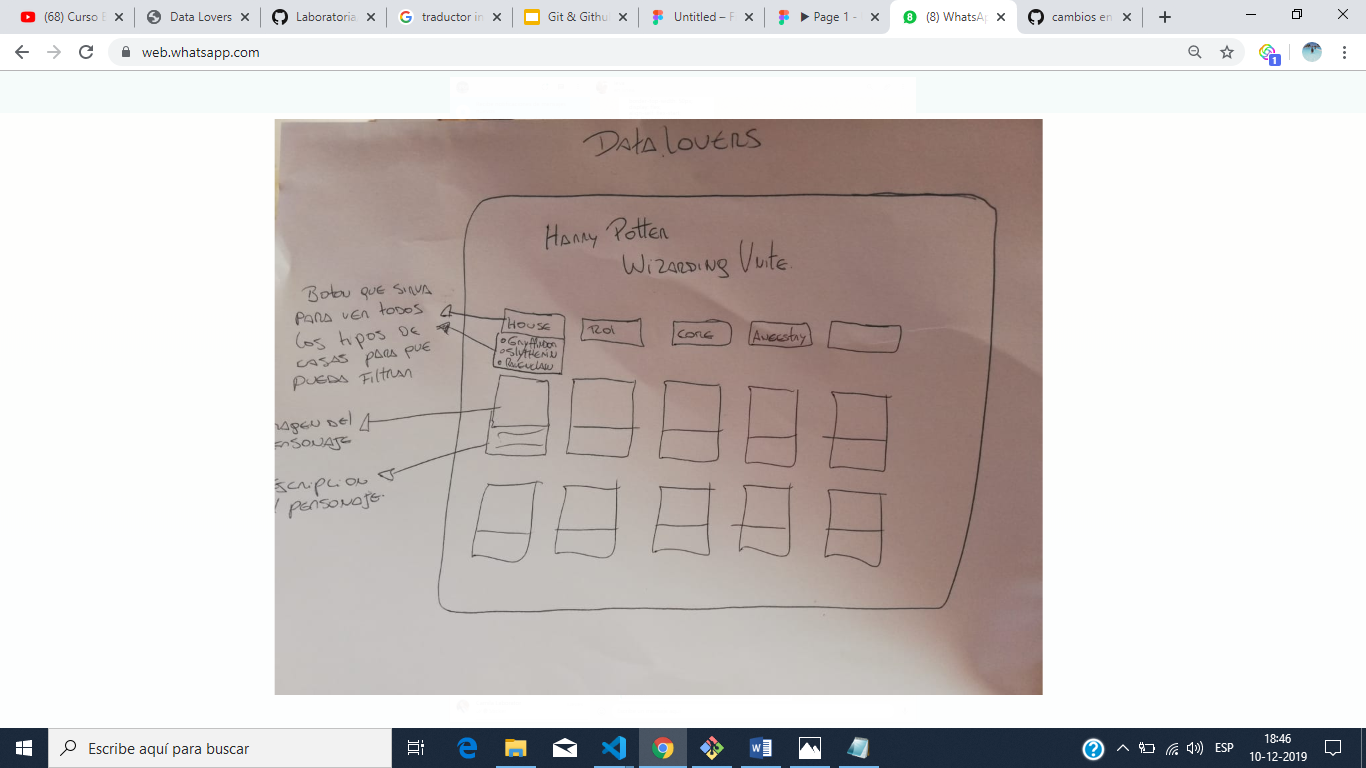 (68) Curso E
Data Lovers
Laboratoria
traductor in
Git & Githu
Untitled – F
Page 1 -
(8) WhatsAp
cambios en
web.whatsapp.com
1
DATA LOVERS
HARRY POTTER
WIZARDING UNITE.
BOTON QUE SIRVA
PARA VER TODOS
LOS TIPOS DE
CASAS PARA QUE
PUEDA FILTRAR
HOUSE
ROL
CORE
ANCESTRY
• Gryffindor
• SLYTHERIN
• RAVENCLAW
MAGEN DEL
ERSONAJE
ESCRIPCION
PERSONAJE.
Escribe aquí para buscar
ESP
18:46
10-12-2019